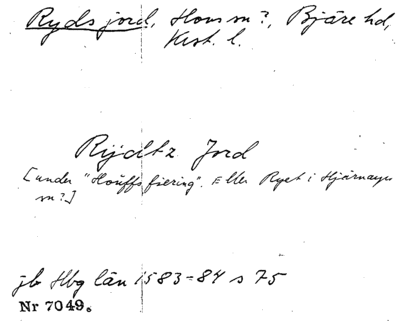 Ryds jord, Hovs sn?, Bjäre hd,
Krst. l.
Rijdtz Jord
[under "Houffs fiering". Eller Ryet i Hjärnarps
sn?]
jb Hbg län 1583-84 s 75
Nr 7049.